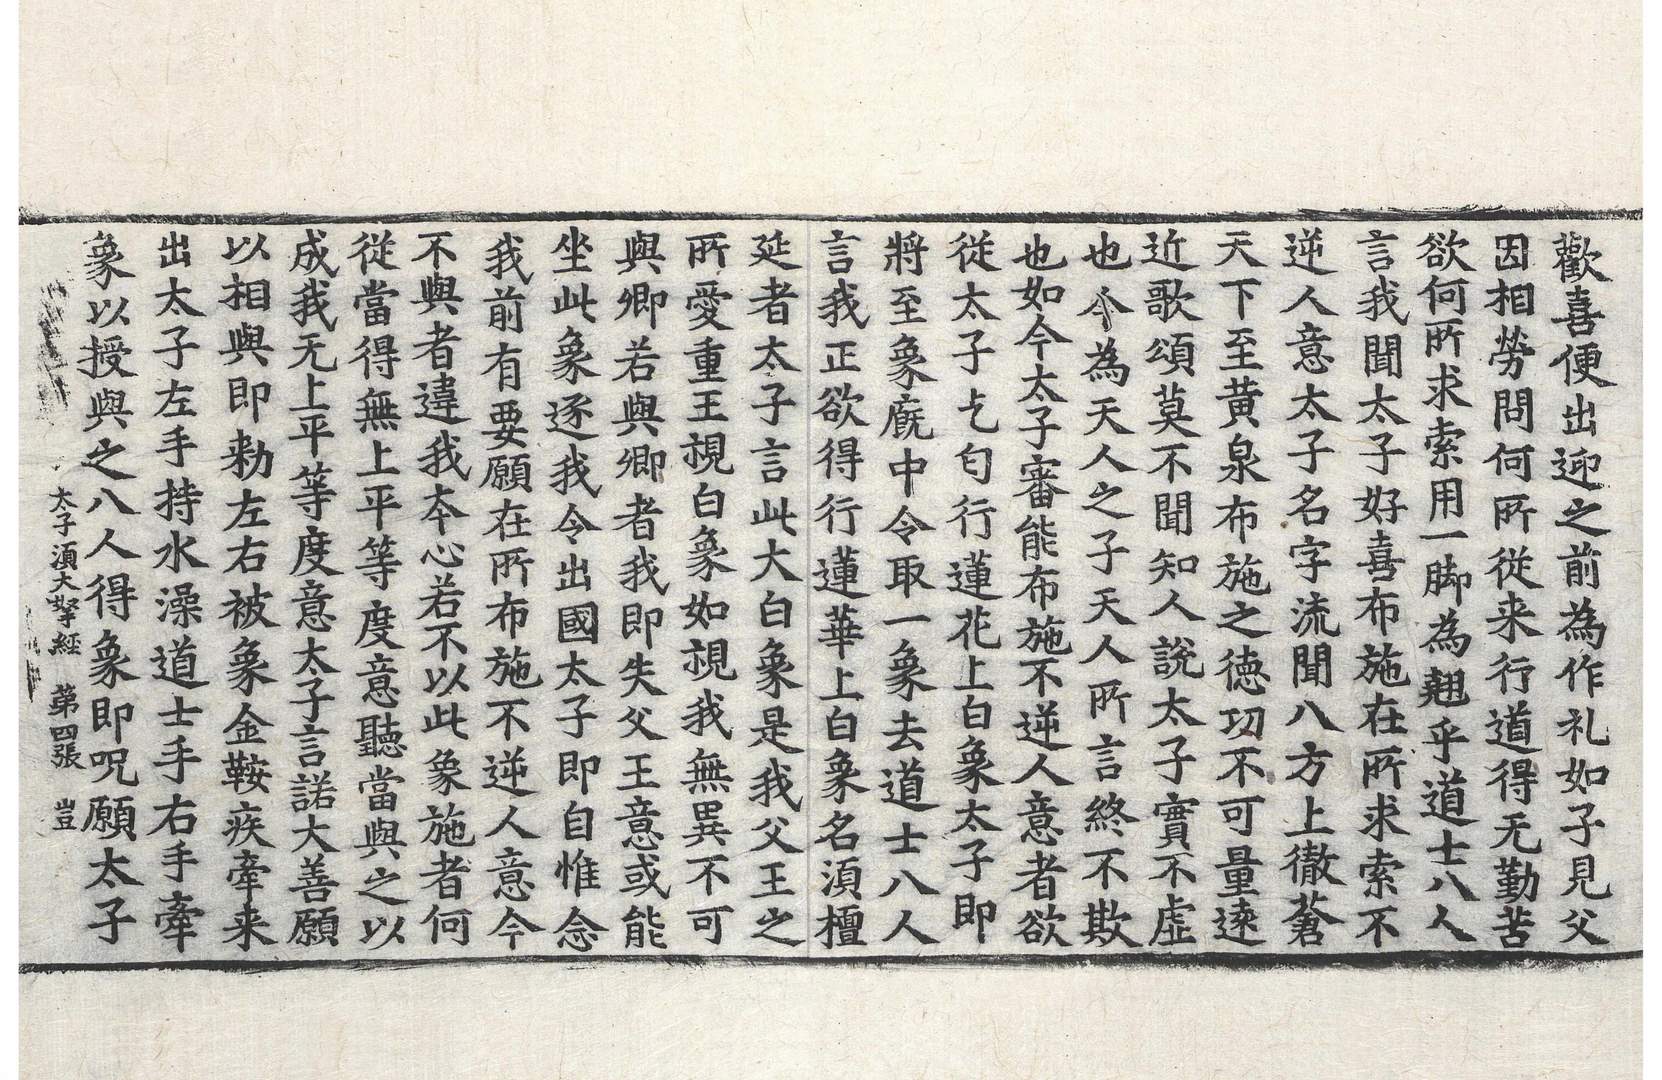 歡喜便出迎之前為作礼如子見父
因相勞問何所從来行道得无勤苦
欲何所求索用一脚為翹乎道士八人
言我聞太子好喜布施在所求索不
逆人意太子名字流聞八方上徹蒼
天下至黄泉布施之德功不可量遠
近歌頌莫不聞知人說太子實不虛
也今為天人之子天人所言終不欺
也如今太子審能布施不逆人意者欲
從太子乞匂行蓮花上白象太子即
將至象廐中令取一象去道士八人
言我正欲得行蓮華上白象名湏檀
延者太子言此大白象是我父王之
所愛重王視白象如視我無異不可
與卿若與卿者我即失父王意或能
坐此象逐我令出國太子即自惟念
我前有要願在所布施不逆人意今
不與者違我夲心若不以此象施者何
從當得無上平等度意聽當與之以
成我无上平等度意太子言諾大善願
以相與即勑左右被象金鞍疾牽来
出太子左手持水澡道士手右手牽
象以授與之八人得象即呪願太子
太子湏大拏經　第四張　豈